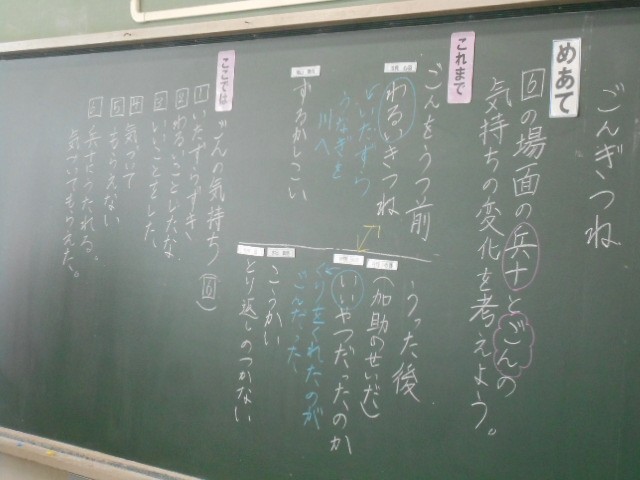 ごんぎつね
めあて
６の場面の兵十とごんの
気持ちの変化を考えよう。
これまで
ごんをうつ前
うった後
わるいきつね
(加助のせいだ)
いたずら
うなぎを
川へ
いいやつだったのか
くりをくれたのが
ごんだった
ずるがしこい
こうかい
とり返しのつかない
ここでは
ごんの気持ち(６)
１いたずらずき
２わるいことしたな
３いいことをした
４気づいて
５もらえない
６兵十にうたれる。
気づいてもらえた。